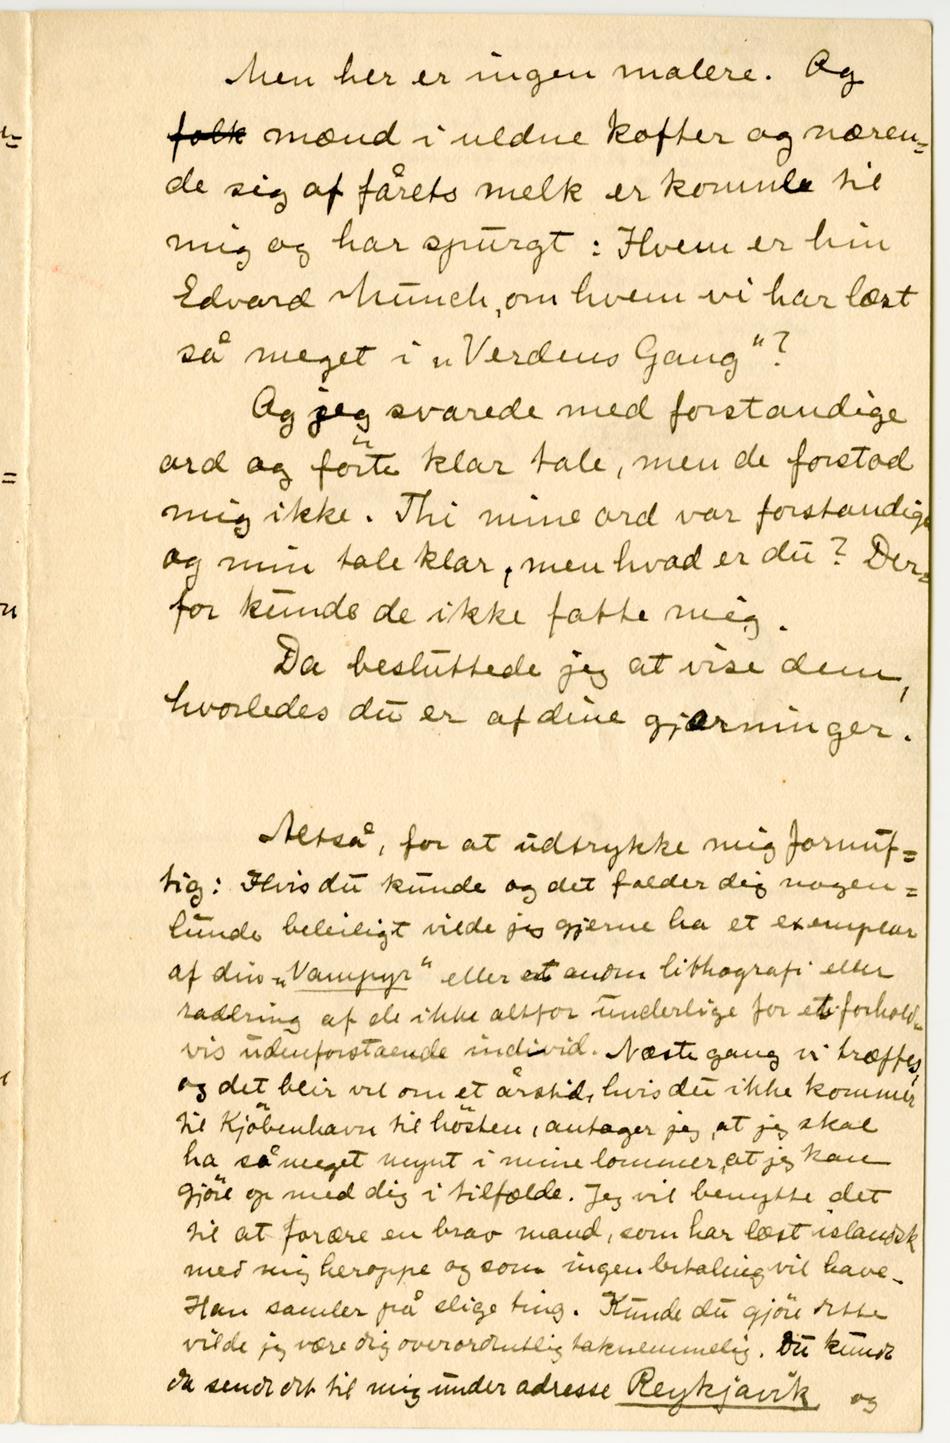 Men her er ingen malere. Og
folk mænd i uldne kofter og næren=
de sig af fårets melk er komne til
mig og har spurgt: Hvem er hin
Edvard Munch, om hvem vi har læst
så meget i „Verdens Gang"?
Og jeg svarede med forstandige
ord og förte klar tale, men de forstod
mig ikke. Thi mine ord var forstandige
og min tale klar, men hvad er du? Der=
for kunde de ikke fatte mig.
Da besluttede jeg at vise dem,
hvorledes du er af dine gjærninger.
Altså, for at udtrykke mig fornuf=
tig: Hvis du kunde og det falder dig nogen=
lunde beleiligt vilde jeg gjerne ha et exemplar
af din „Vampyr" eller et anden lithografi eller
radering af de ikke altfor underlige for et forholds=
vis udenforstaende individ. Næste gang vi træffes,
og det blir vel om et årstid, hvis du ikke kommer
til Kjöbenhavn til hösten, antager jeg, at jeg skal
ha så meget mynt i mine lommer, at jeg kan
gjöre op med dig i tilfælde. Jeg vil benytte det
til at forære en brav mand, som har læst islandsk
med mig heroppe og som ingen betaling vil have.
Han samler på slige ting. Kunde du gjöre dette
vilde jeg være dig overordentlig taknemmelig. Du kunde
da sende det til mig under adresse Reykjavik og